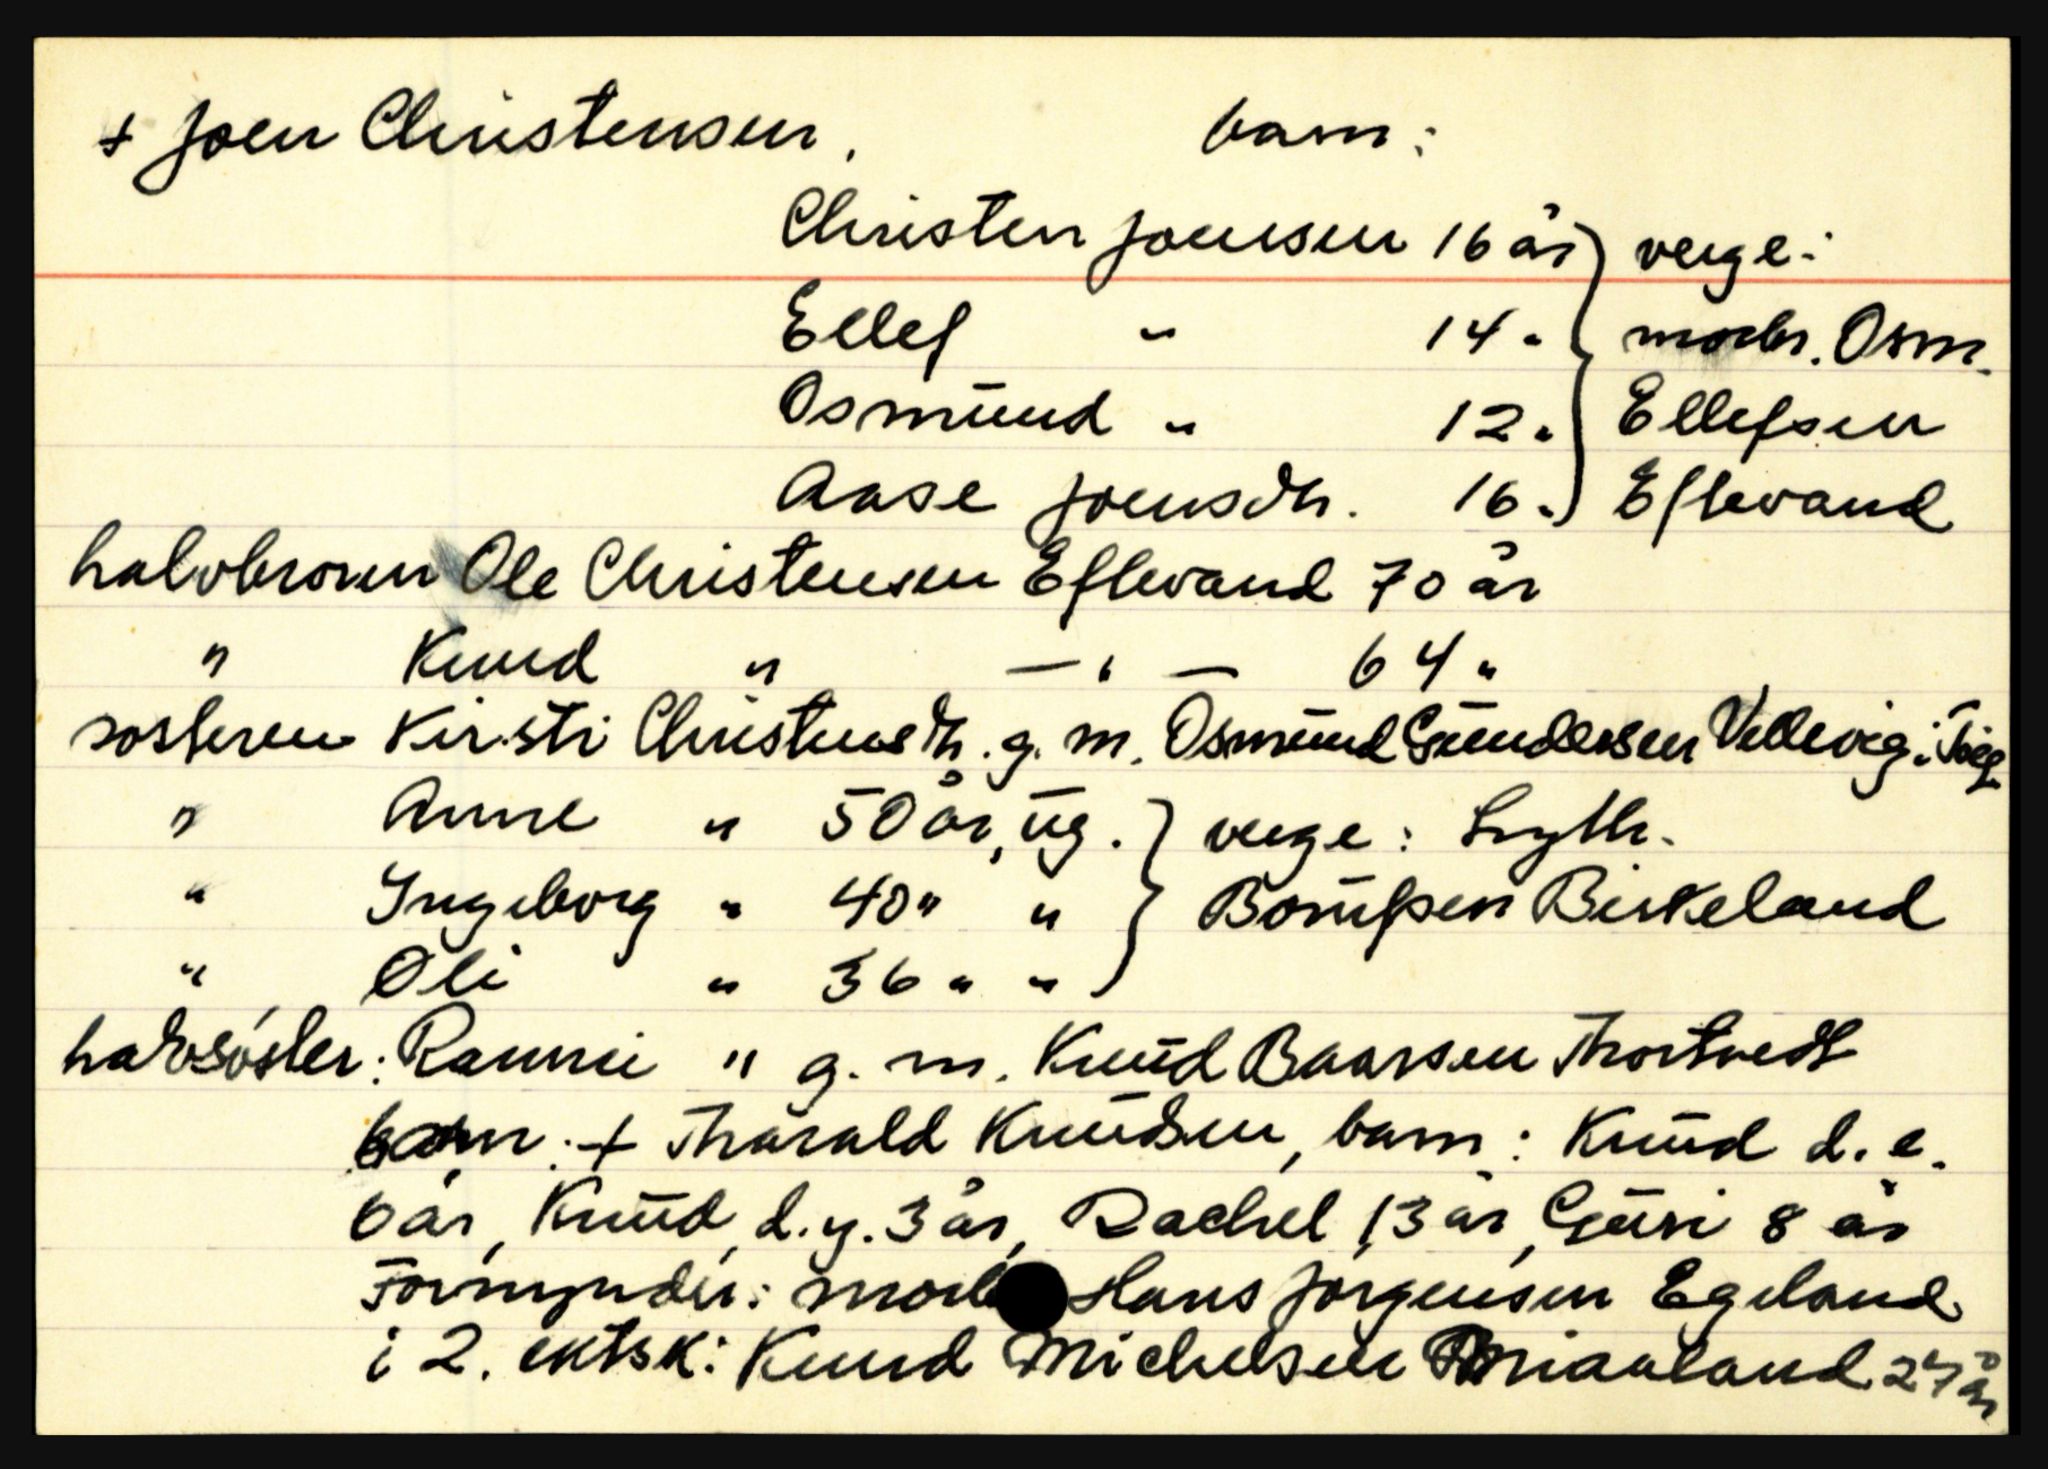 + Joen Christensen, barn:
Christen Joensen 16 år } verge:
Ellef " 14 " morbr. Osm.
Osmund " 12 " Ellefsen
Aase Joensdtr. 16 " Eftevand
halvbroren Ole Christensen Eftevand 70 år
" Knud " — " — 64 "
søsteren Kirsti Christensdtr. g. m. Osmund Gundersen Vellevig i
" Anne " 50 år, ug. } verge:
" Ingeborg " 40 " " Birkeland
" Oli " 36 " "
halvsøster: Rannei " g. m. Knud Baarsen Thortvedt
barn: + Tharald Knudsen, barn: Knud d. e.
6 år, Knud d. y. 3 år, Rachel 13 år, Guri 8 år
Formynder: Hans Jørgensen Egeland
i 2. ektsk: Knud Michelsen 27 år